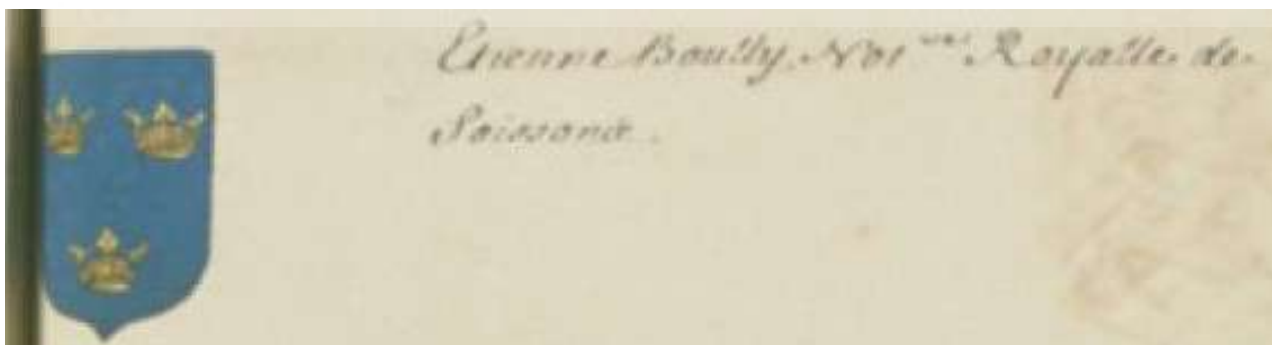 Etienne Boully, Not.re Royalle de
Soissons.